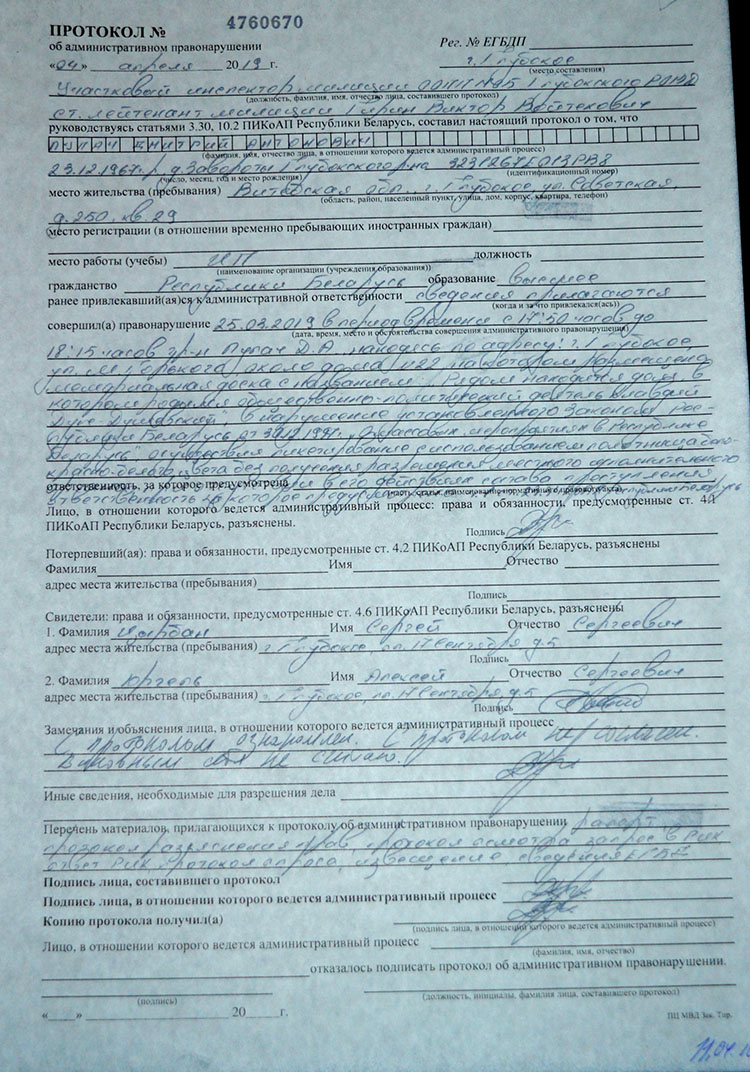 ПРОТОКОЛ № 4760670
об административном правонарушении Рег. № ЕГБДП
«04» апреля 2019 г. г. Глубокое
(место составления)
Участковый инспектор милиции Глубокского РОВД
(должность, фамилия, имя, отчество лица, составившего протокол)
ст. лейтенант милиции Виктор
руководствуясь статьями 3.30, 10.2 ПИКоАП Республики Беларусь, составил настоящий протокол о том, что
Дмитрий Антонович
(фамилия, имя, отчество лица, в отношении которого ведется административный процесс)
23.12.1967г. д. Глубокского р-на
(число, месяц, год и место рождения) (идентификационный номер)
место жительства (пребывания) Витебская обл., г. Глубокое, ул. Советская,
(область, район, населенный пункт, улица, дом, корпус, квартира, телефон)
д. 250, кв. 29
место регистрации (в отношении временно пребывающих иностранных граждан)
место работы (учебы) ИП должность
(наименование организации (учреждения образования))
гражданство Республики Беларусь образование высшее
ранее привлекавший(ая)ся к административной ответственности сведения прилагаются
(когда и за что привлекался(ась)
совершил(а) правонарушение 25.03.2019 в период времени с 17:50 часов до
(дата, время, место и обстоятельства совершения административного правонарушения)
18:15 часов гр-н Д.А., находясь по адресу: г. Глубокое
ул. М. Горького около дома на котором размещена
мемориальная доска с названием „Рядом находится дом, в
котором родился общественно-политический деятель
", в нарушение установленного Законом Рес-
публики Беларусь от 30.12.1997г. „О массовых мероприятиях в Республике
Беларусь" осуществил пикетирование с использованием полотнища бело-
красно-белого цвета без получения разрешения местного исполнительного
ответственность, за которое предусмотрена в его действиях состава
(часть, статья, наименование нормативного правового акта)
ответственность за которое
Лицо, в отношении которого ведется административный процесс: права и обязанности, предусмотренные ст. 4.1
ПИКоАП Республики Беларусь, разъяснены.
Подпись
Потерпевший(ая): права и обязанности, предусмотренные ст. 4.2 ПИКоАП Республики Беларусь, разъяснены
Фамилия Имя Отчество
адрес места жительства (пребывания)
Подпись
Свидетели: права и обязанности, предусмотренные ст. 4.6 ПИКоАП Республики Беларусь, разъяснены
1. Фамилия Имя Сергей Отчество Сергеевич
адрес места жительства (пребывания) г. Глубокое, пл. 17 Сентября д. 5
Подпись
2. Фамилия Юргель Имя Алексей Отчество Сергеевич
адрес места жительства (пребывания) г. Глубокое, пл. 17 Сентября д. 5
Подпись
Замечания и объяснения лица, в отношении которого ведется административный процесс
С протоколом ознакомлен. С протоколом не согласен.
Виновным себя не считаю.
Иные сведения, необходимые для разрешения дела
Перечень материалов, прилагающихся к протоколу об административном правонарушении рапорт
протокол разъяснения прав, протокол осмотра запрос в РИК
ответ РИК протокол опроса, извещение сведения
Подпись лица, составившего протокол
Подпись лица, в отношении которого ведется административный процесс
Копию протокола получил(а)
(подпись лица, в отношении которого ведется административный процесс)
Лицо, в отношении которого ведется административный процесс
(фамилия, имя, отчество)
отказалось подписать протокол об административном правонарушении.
(подпись) (должность, инициалы, фамилия лица, составившего протокол)
«__» 20__ г. ПЦ МВД Зак. Тир.
11.04.